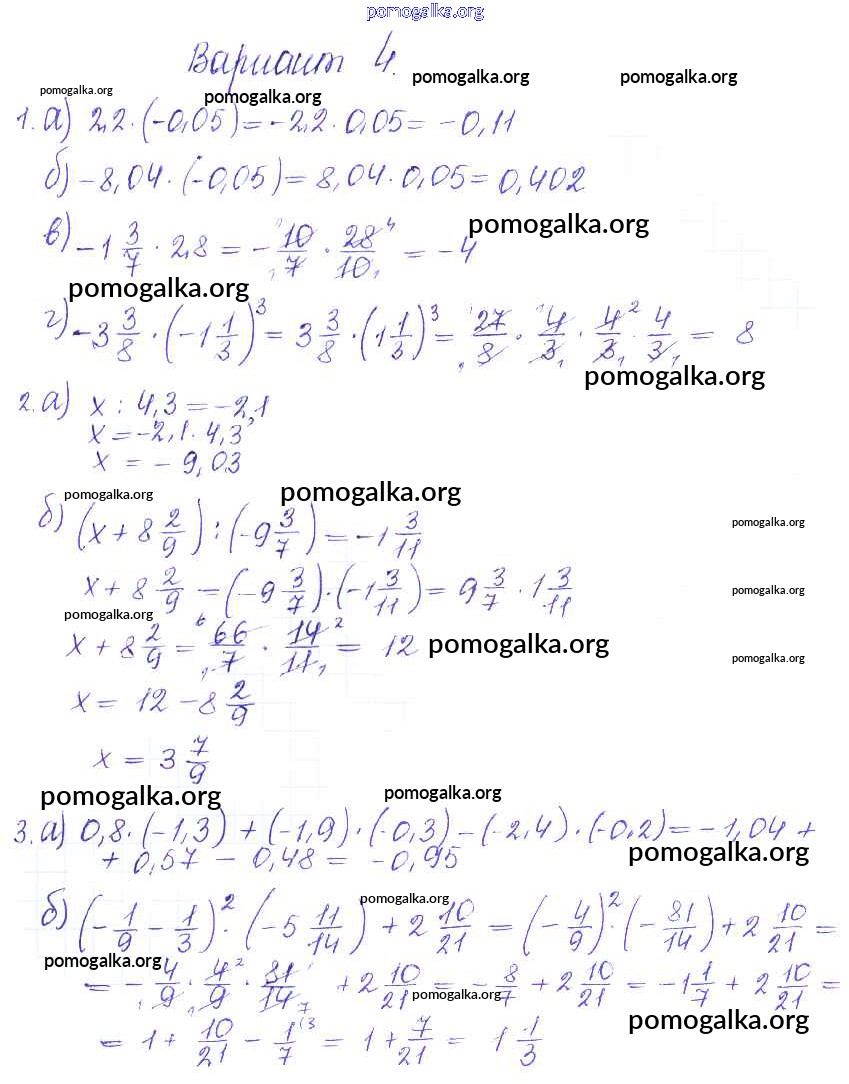 pomogalka.org
Вариант 4.
pomogalka.org pomogalka.org
pomogalka.org pomogalka.org
1. а) 2,2 · (-0,05) = -2,2 · 0,05 = -0,11
б) -8,04 · (-0,05) = 8,04 · 0,05 = 0,402
pomogalka.org
в) -1 3/7 · 2,8 = - 10/7 · 28/10 = -4
pomogalka.org
г) -3 3/8 · (-1 1/3)^3 = 3 3/8 · (1 1/3)^3 = 27/8 · 4/3 · 4/3 · 4/3 = 8
pomogalka.org
2. а) x : 4,3 = -2,1
x = -2,1 · 4,3
x = -9,03
pomogalka.org pomogalka.org
pomogalka.org
б) (x + 8 2/9) : (-9 3/7) = -1 3/11
x + 8 2/9 = (-9 3/7) · (-1 3/11) = 9 3/7 · 1 3/11
pomogalka.org
pomogalka.org
x + 8 2/9 = 66/7 · 14/11 = 12
pomogalka.org
pomogalka.org
x = 12 - 8 2/9
x = 3 7/9
pomogalka.org pomogalka.org
3. а) 0,8 · (-1,3) + (-1,9) · (-0,3) - (-2,4) · (-0,2) = -1,04 +
+ 0,57 - 0,48 = -0,95
pomogalka.org
pomogalka.org
б) (- 1/9 - 1/3)^2 · (-5 11/14) + 2 10/21 = (- 4/9)^2 · (- 81/14) + 2 10/21 =
pomogalka.org
= - 4/9 · 4/9 · 81/14 + 2 10/21 = - 8/7 + 2 10/21 = -1 1/7 + 2 10/21 =
pomogalka.org
pomogalka.org
= 1 + 10/21 - 1/7 = 1 + 7/21 = 1 1/3